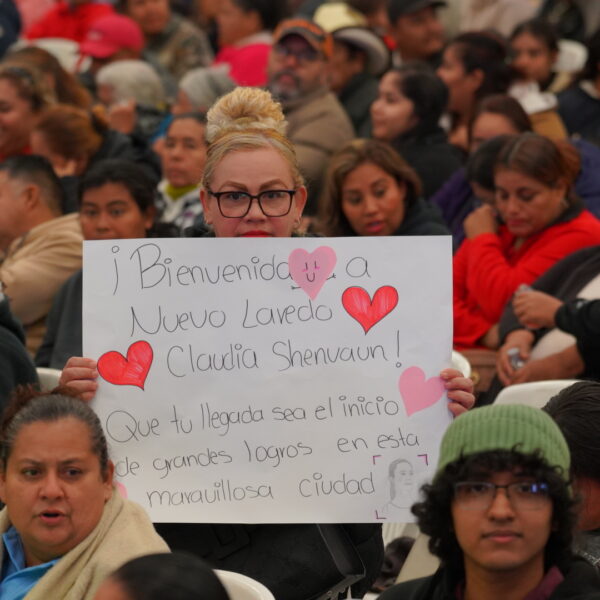 ¡Bienvenida a
Nuevo Laredo
Claudia Shenvaun!
Que tu llegada sea el inicio
de grandes logros en esta
maravillosa ciudad